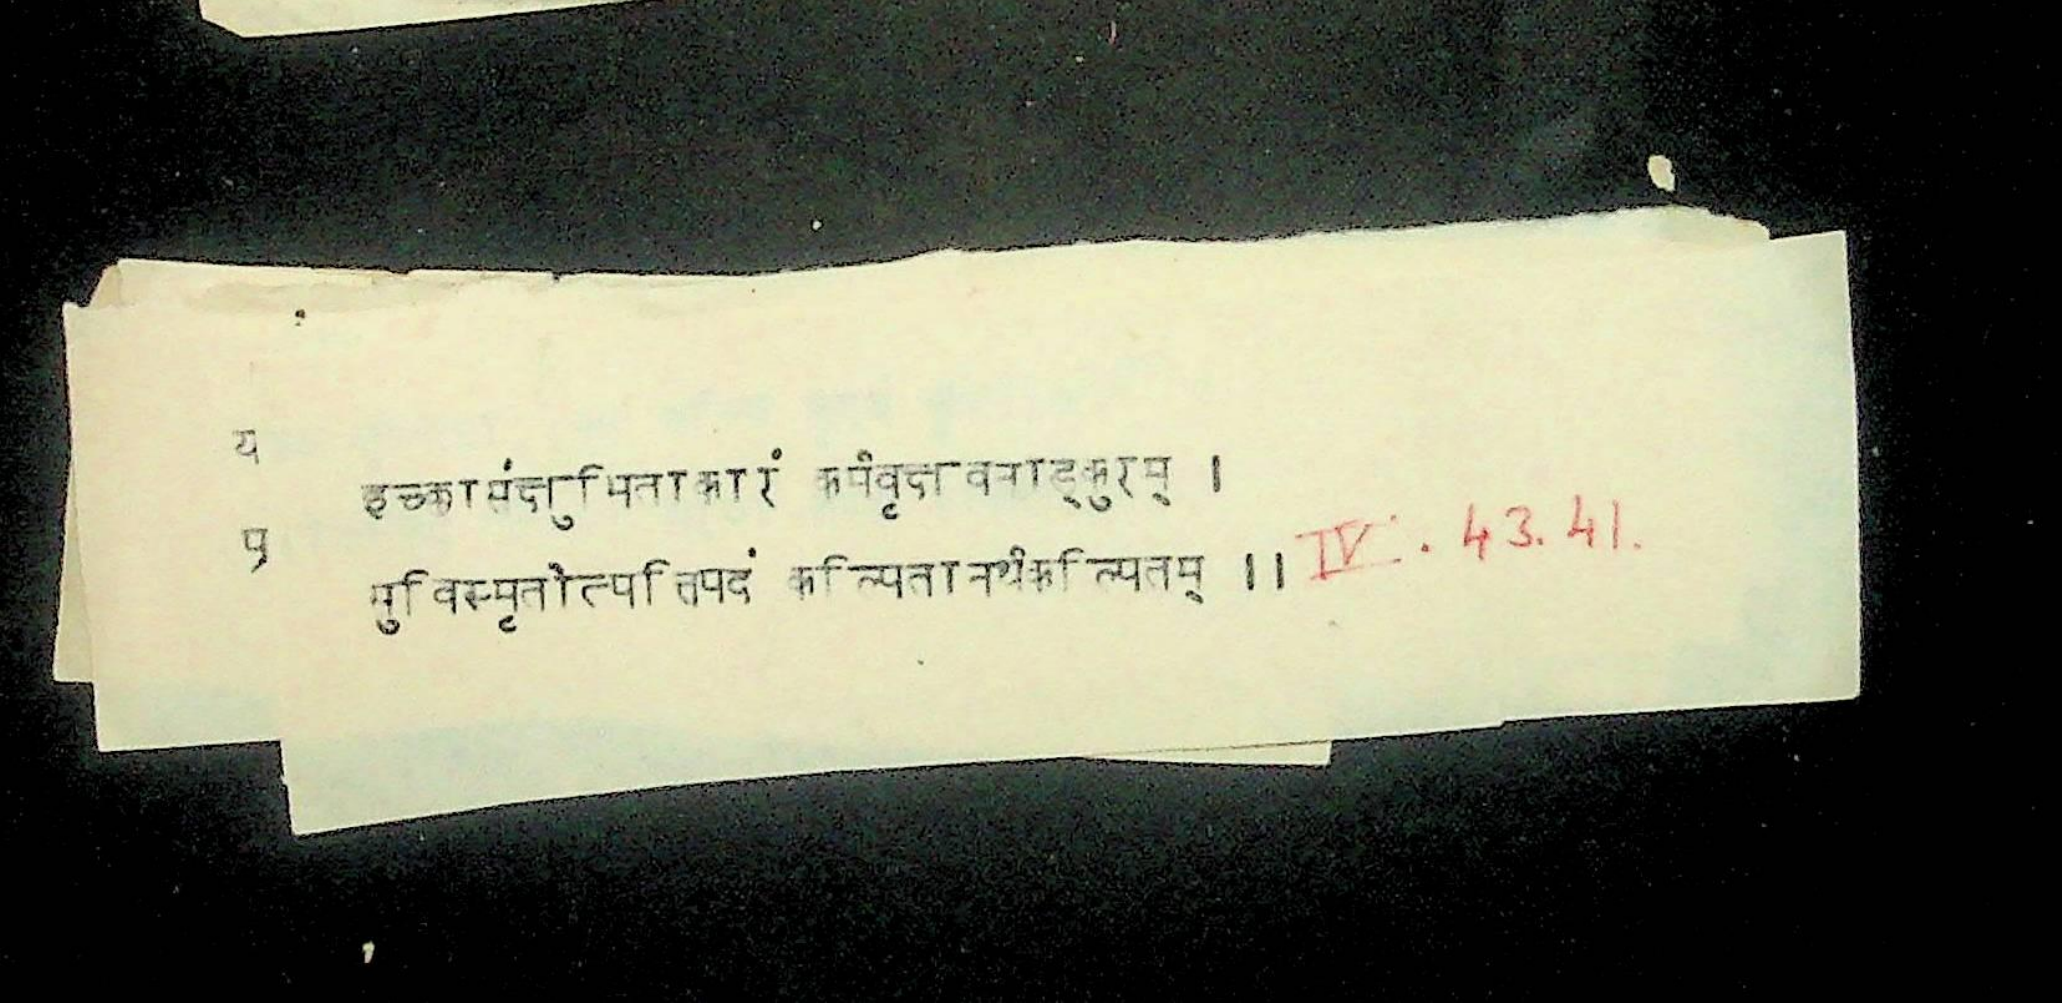 य
इच्छासंक्षुभिताकारं कर्मवृक्षवनाङ्कुरम् ।
प्र
सुविस्मृतोत्पत्तिपदं कल्पितानर्थकल्पितम् ।। IV. 43. 41.